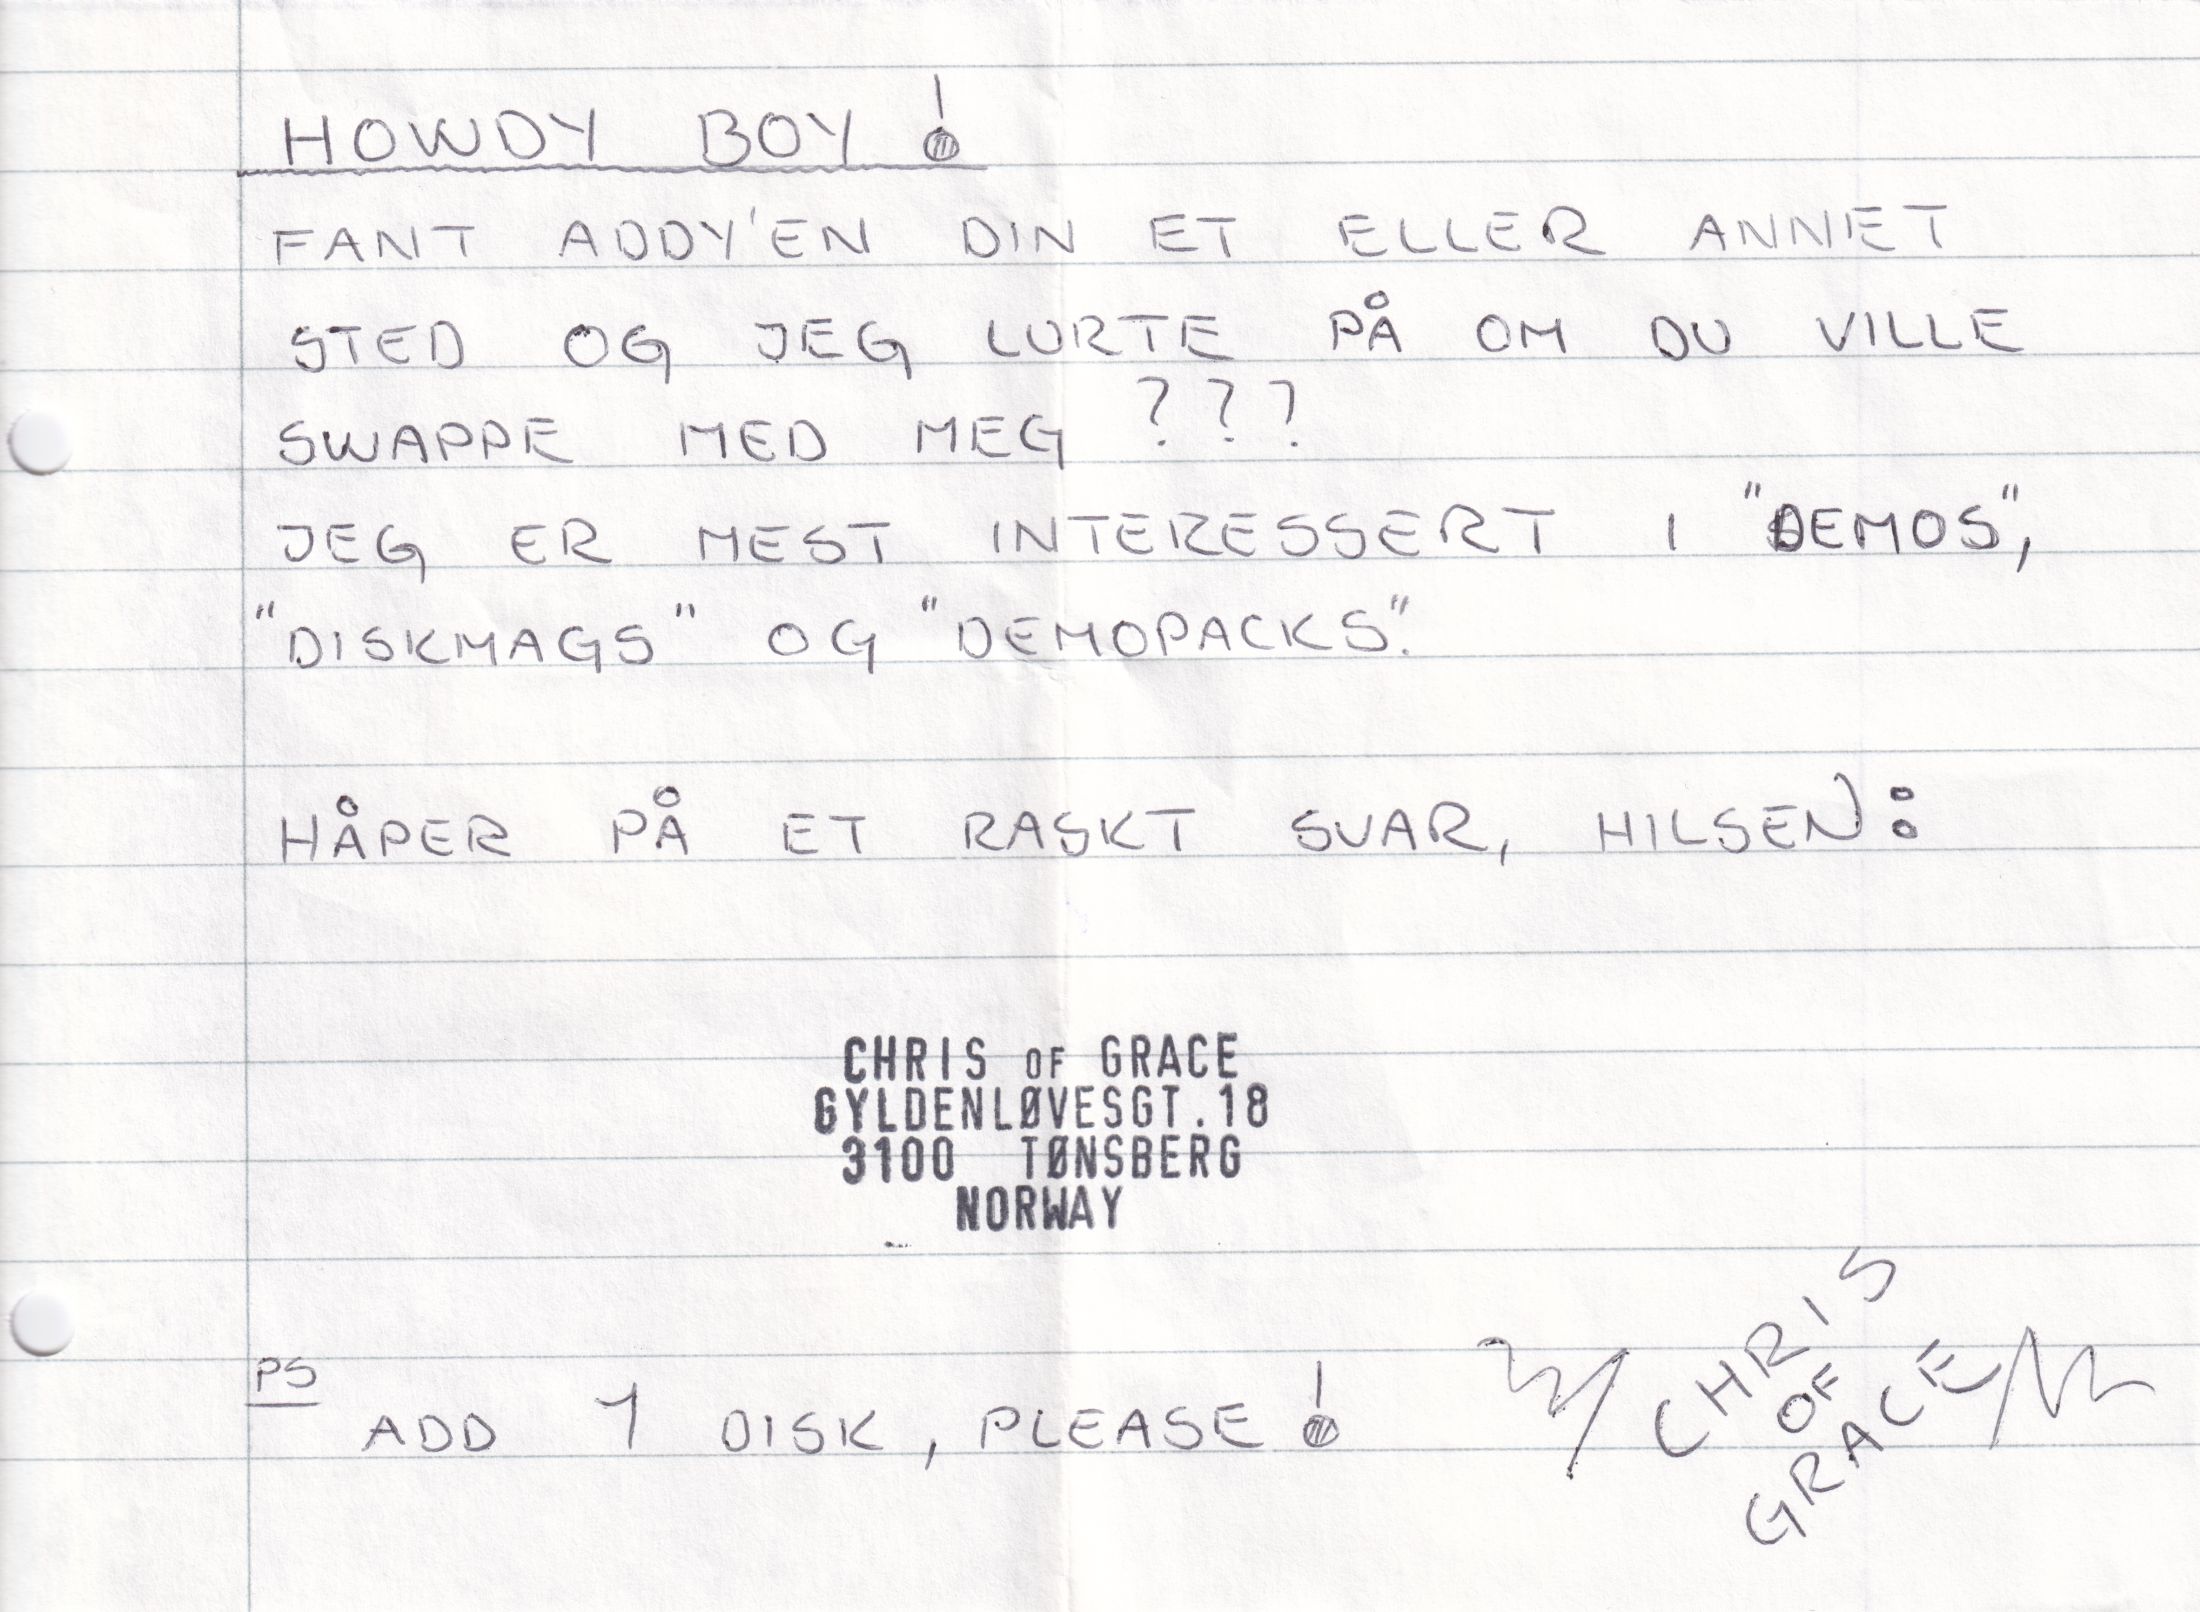 HOWDY BOY!
FANT ADDY'EN DIN ET ELLER ANNET
STED OG JEG LURTE PÅ OM DU VILLE
SWAPPE MED MEG ???
JEG ER MEST INTERESSERT I "DEMOS",
"DISKMAGS" OG "DEMOPACKS".
HÅPER PÅ ET RASKT SVAR, HILSEN:
CHRIS OF GRACE
GYLDENLØVESGT.18
3100 TØNSBERG
NORWAY
PS
ADD 1 DISK, PLEASE!
CHRIS
OF
GRACE